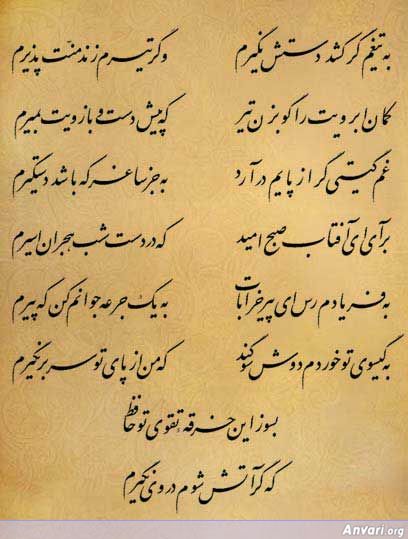 به تیغم گر کشد دستش نگیرم وگر تیرم زند منت پذیرم
کمان ابرویت را گو بزن تیر که پیش دست و بازویت بمیرم
غم گیتی گر از پایم درآرد به جز ساغر که باشد دستگیرم
برآی ای آفتاب صبح امید که در دست شب هجران اسیرم
به فریادم رس ای پیر خرابات به یک جرعه جوانم کن که پیرم
به گیسوی تو خوردم دوش سوگند که من از پای تو سر بر نگیرم
بسوز این خرقه تقوی تو حافظ
که گر آتش شوم در وی نگیرم
Anvari.org